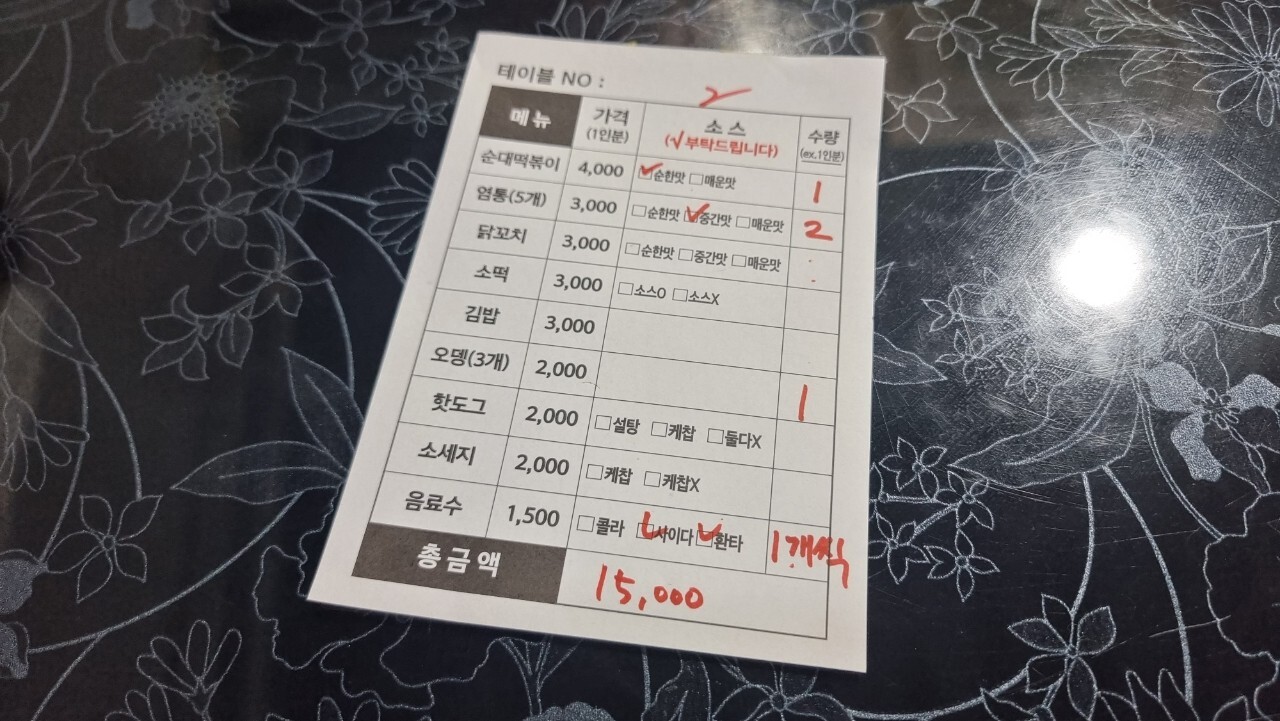 테이블 NO : 2
메뉴 가격 (1인분) 소스 (√부탁드립니다) 수량 (ex,1인분)
순대떡볶이 4,000 ✓순한맛 □매운맛 1
염통(5개) 3,000 □순한맛 ✓중간맛 □매운맛 2
닭꼬치 3,000 □순한맛 □중간맛 □매운맛
소떡 3,000 □소스O □소스X
김밥 3,000
오뎅(3개) 2,000 1
핫도그 2,000 □설탕 □케찹 □둘다X
소세지 2,000 □케찹 □케찹X
음료수 1,500 □콜라 ✓사이다 ✓환타 1개씩
총금액 15,000